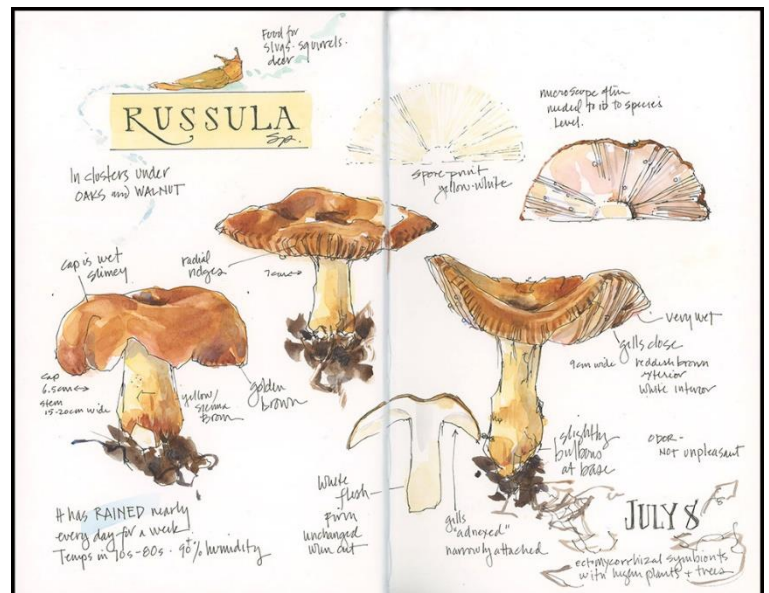 Food for
slugs · squirrels ·
deer
RUSSULA
sp.
In clusters under
OAKS and WALNUT
cap is wet
slimey
radial
ridges
7cm↔
cap
6.5cm↔
stem
15-20cm wide
yellow/
sienna
Brown
golden
brown
It has RAINED nearly
every day for a week.
Temps in 70s-80s · 90+% humidity
spore print
yellow-white
microscope often
needed to ID to species
Level.
very wet
gills close
reddish brown
exterior
White interior
9cm wide
slightly
bulbous
at base
ODOR -
NOT unpleasant
White
flesh
Firm
unchanged
when cut
gills
"adnexed"
narrowly attached
JULY 8
ectomycorrhizal symbionts
with higher plants + trees